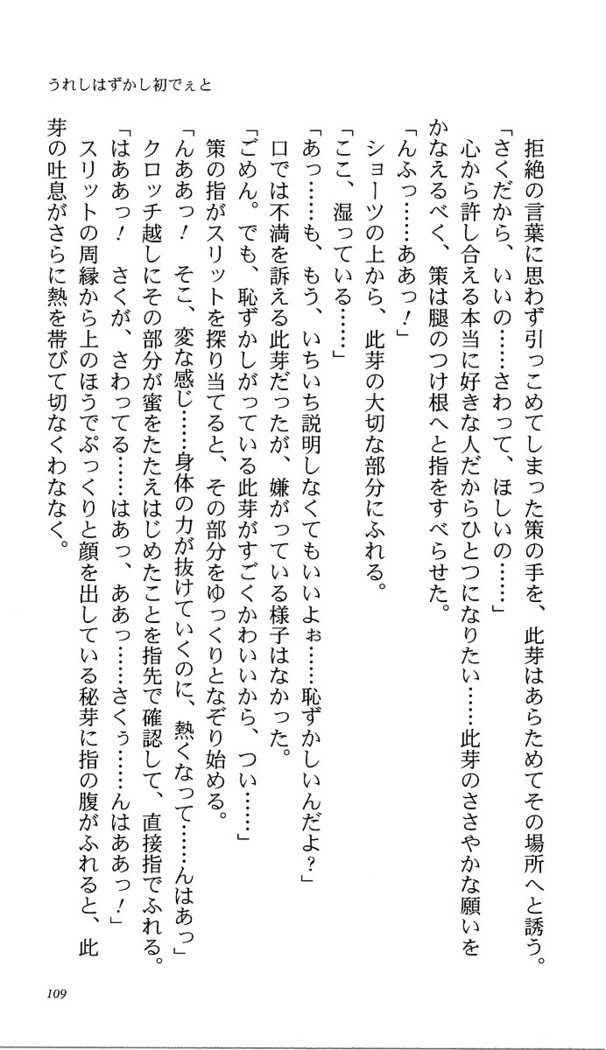 うれしはずかし初でぇと
拒絶の言葉に思わず引っこめてしまった策の手を、此芽はあらためてその場所へと誘う。
「さくだから、いいの……さわって、ほしいの……」
心から許し合える本当に好きな人だからひとつになりたい……此芽のささやかな願いを
かなえるべく、策は腿のつけ根へと指をすべらせた。
「んふっ……ああっ！」
ショーツの上から、此芽の大切な部分にふれる。
「ここ、湿っている……」
「あっ……も、もう、いちいち説明しなくてもいいよぉ……恥ずかしいんだよ？」
口では不満を訴える此芽だったが、嫌がっている様子はなかった。
「ごめん。でも、恥ずかしがっている此芽がすごくかわいいから、つい……」
策の指がスリットを探り当てると、その部分をゆっくりとなぞり始める。
「んああっ！　そこ、変な感じ……身体の力が抜けていくのに、熱くなって……んはあっ」
クロッチ越しにその部分が蜜をたたえはじめたことを指先で確認して、直接指でふれる。
「はああっ！　さくが、さわってる……はあっ、ああっ……さくぅ……んはああっ！」
スリットの周縁から上のほうでぷっくりと顔を出している秘芽に指の腹がふれると、此
芽の吐息がさらに熱を帯びて切なくわななく。
109